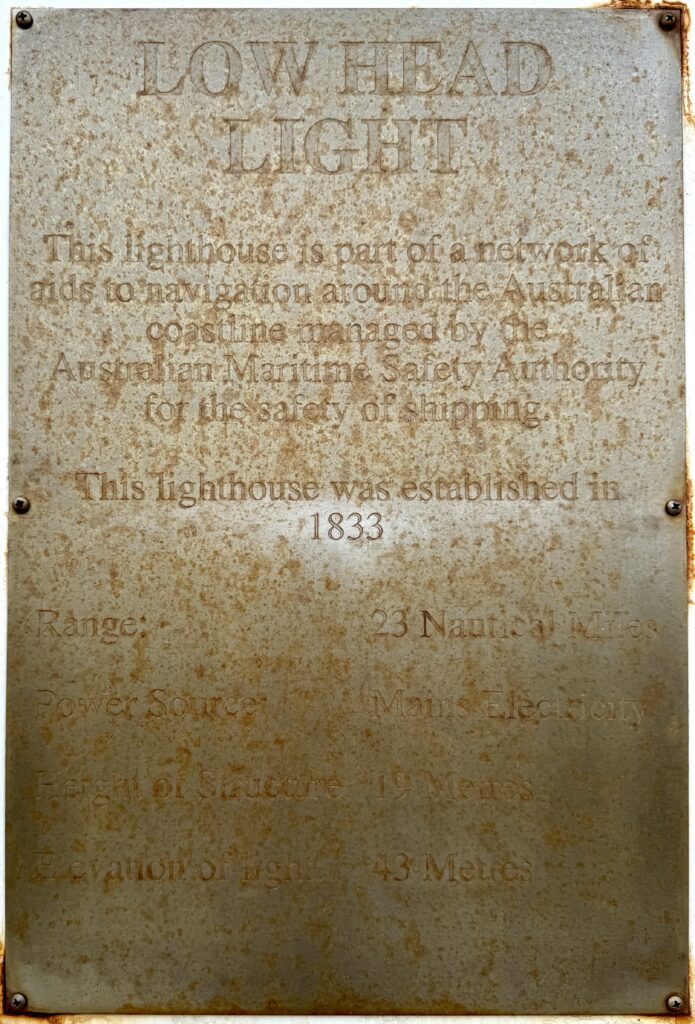 LOW HEAD
LIGHT
This lighthouse is part of a network of
aids to navigation around the Australian
coastline managed by the
Australian Maritime Safety Authority
for the safety of shipping.
This lighthouse was established in
1833
Range: 23 Nautical Miles
Power Source: Mains Electricity
Height of Structure: 19 Metres
Elevation of light: 43 Metres